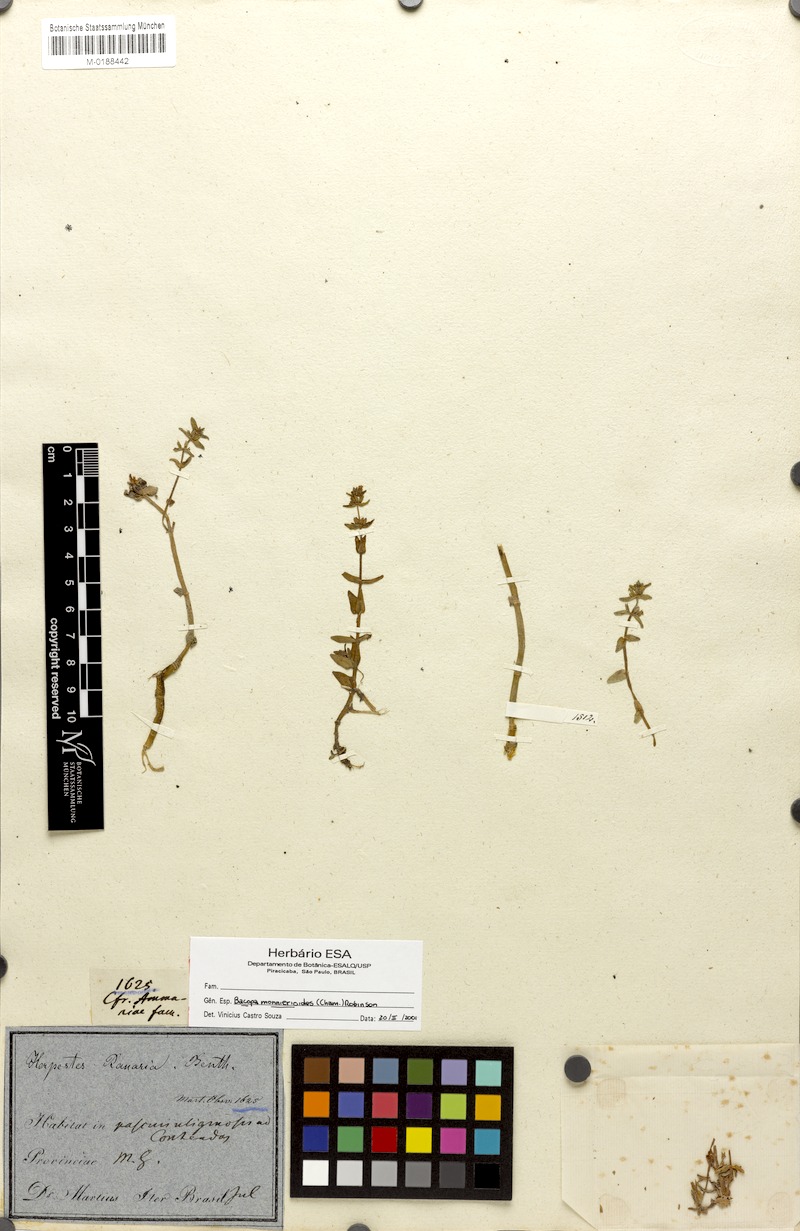 Botanische Staatssammlung München
M-0188442
cm 0 1 2 3 4 5 6 7 8 9 10
copyright reserved
BOTANISCHE STAATSSAMMLUNG MÜNCHEN
Herbário ESA
Departamento de Botânica-ESALQ/USP
Piracicaba, São Paulo, BRASIL
Fam.
Gên. Esp. Bacopa monnierioides (Cham.) Robinson
Det. Vinicius Castro Souza Data: 20/II/2001
1625
Cfr. Amma-
niae fam.
Herpestes Ranaria. Benth.
Mart. Obs. 1625
Habitat in pascuis uliginosis ad
Contendas
Provinciae M.G.
Dr. Martius Iter Brasil. Jul